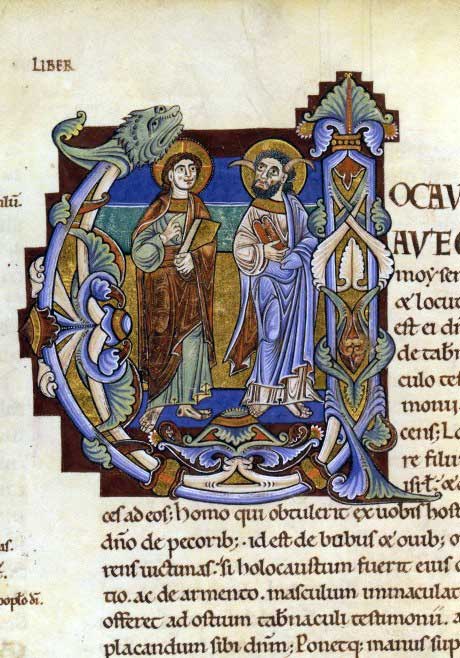 LIBER
VOCAV
AVE
moysen
& locut
est ei
de tab̄n
culo tes
monii.
cens; Lo
re filii
isrł. &
ces ad eos; Homo qui obtulerit ex uobis hos
dño de pecorib; id est de bubus & ouib;
rens uictimas. si holocaustum fuerit eius
tio. ac de armento. masculum immaculat
offeret ad ostium tab̄naculi testimonii. a
placandum sibi dñm; Ponetq; manus sup